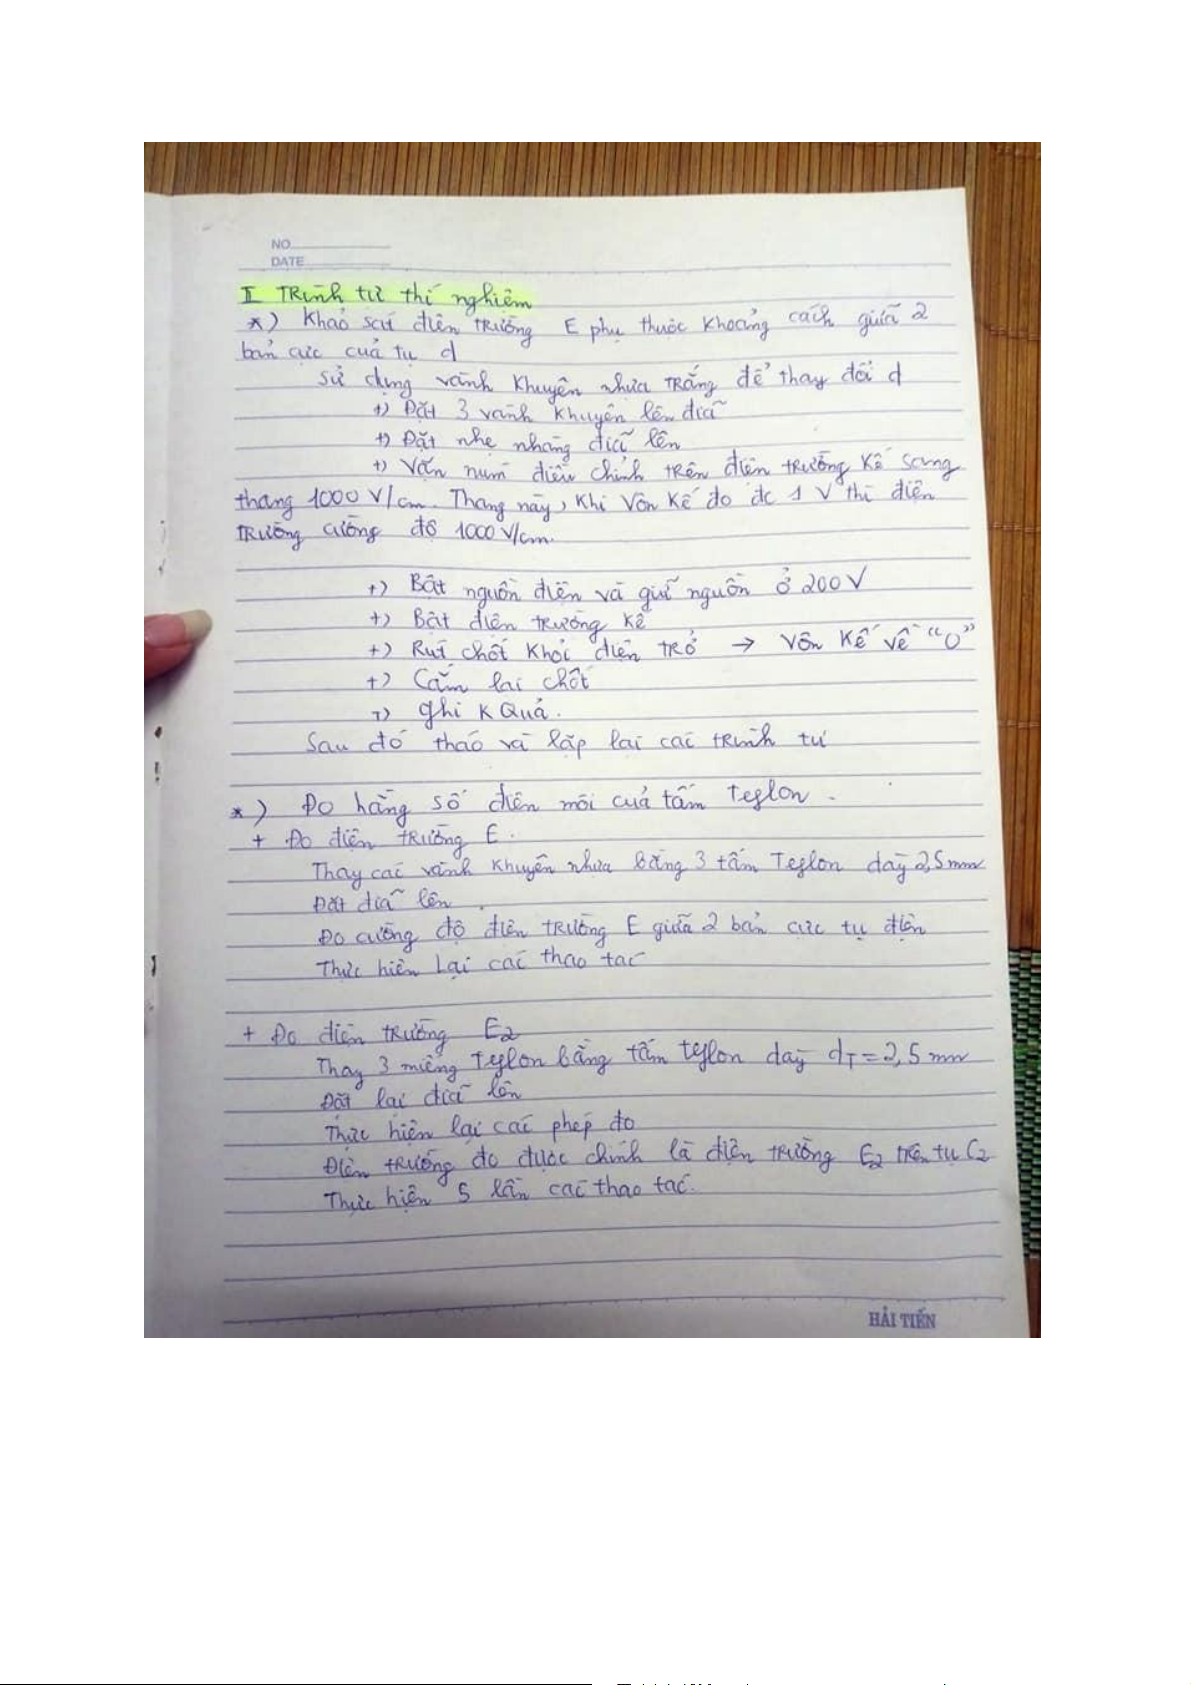 NO
DATE
II Trình tự thí nghiệm
*) Khảo sát điện trường E phụ thuộc khoảng cách giữa 2
bản cực của tụ d
Sử dụng vành khuyên nhựa trắng để thay đổi d
+) Đặt 3 vành khuyên lên đĩa
+) Đặt nhẹ nhàng đĩa lên
+) Vặn núm điều chỉnh trên điện trường kế sang
thang 1000 V/cm. Thang này, khi Vôn kế đo đc 1 V thì điện
trường cường độ 1000 V/cm.
+) Bật nguồn điện và giữ nguồn ở 200 V
+) Bật điện trường kế
+) Rút chốt khỏi điện trở → Vôn kế về "0"
+) Cắm lại chốt
+) ghi k quả.
Sau đó tháo và lặp lại các trình tự
*) Đo hằng số điện môi của tấm Teflon.
+ Đo điện trường E.
Thay các vành khuyên nhựa bằng 3 tấm Teflon dày 2,5mm
Đặt đĩa lên.
Đo cường độ điện trường E giữa 2 bản cực tụ điện
Thực hiện lại các thao tác
+ Đo điện trường E2
Thay 3 miếng Teflon bằng tấm teflon dày dT = 2,5 mm
Đặt lại đĩa lên
Thực hiện lại các phép đo
Điện trường đo được chính là điện trường E2 trên tụ C2
Thực hiện 5 lần các thao tác.
HẢI TIẾN